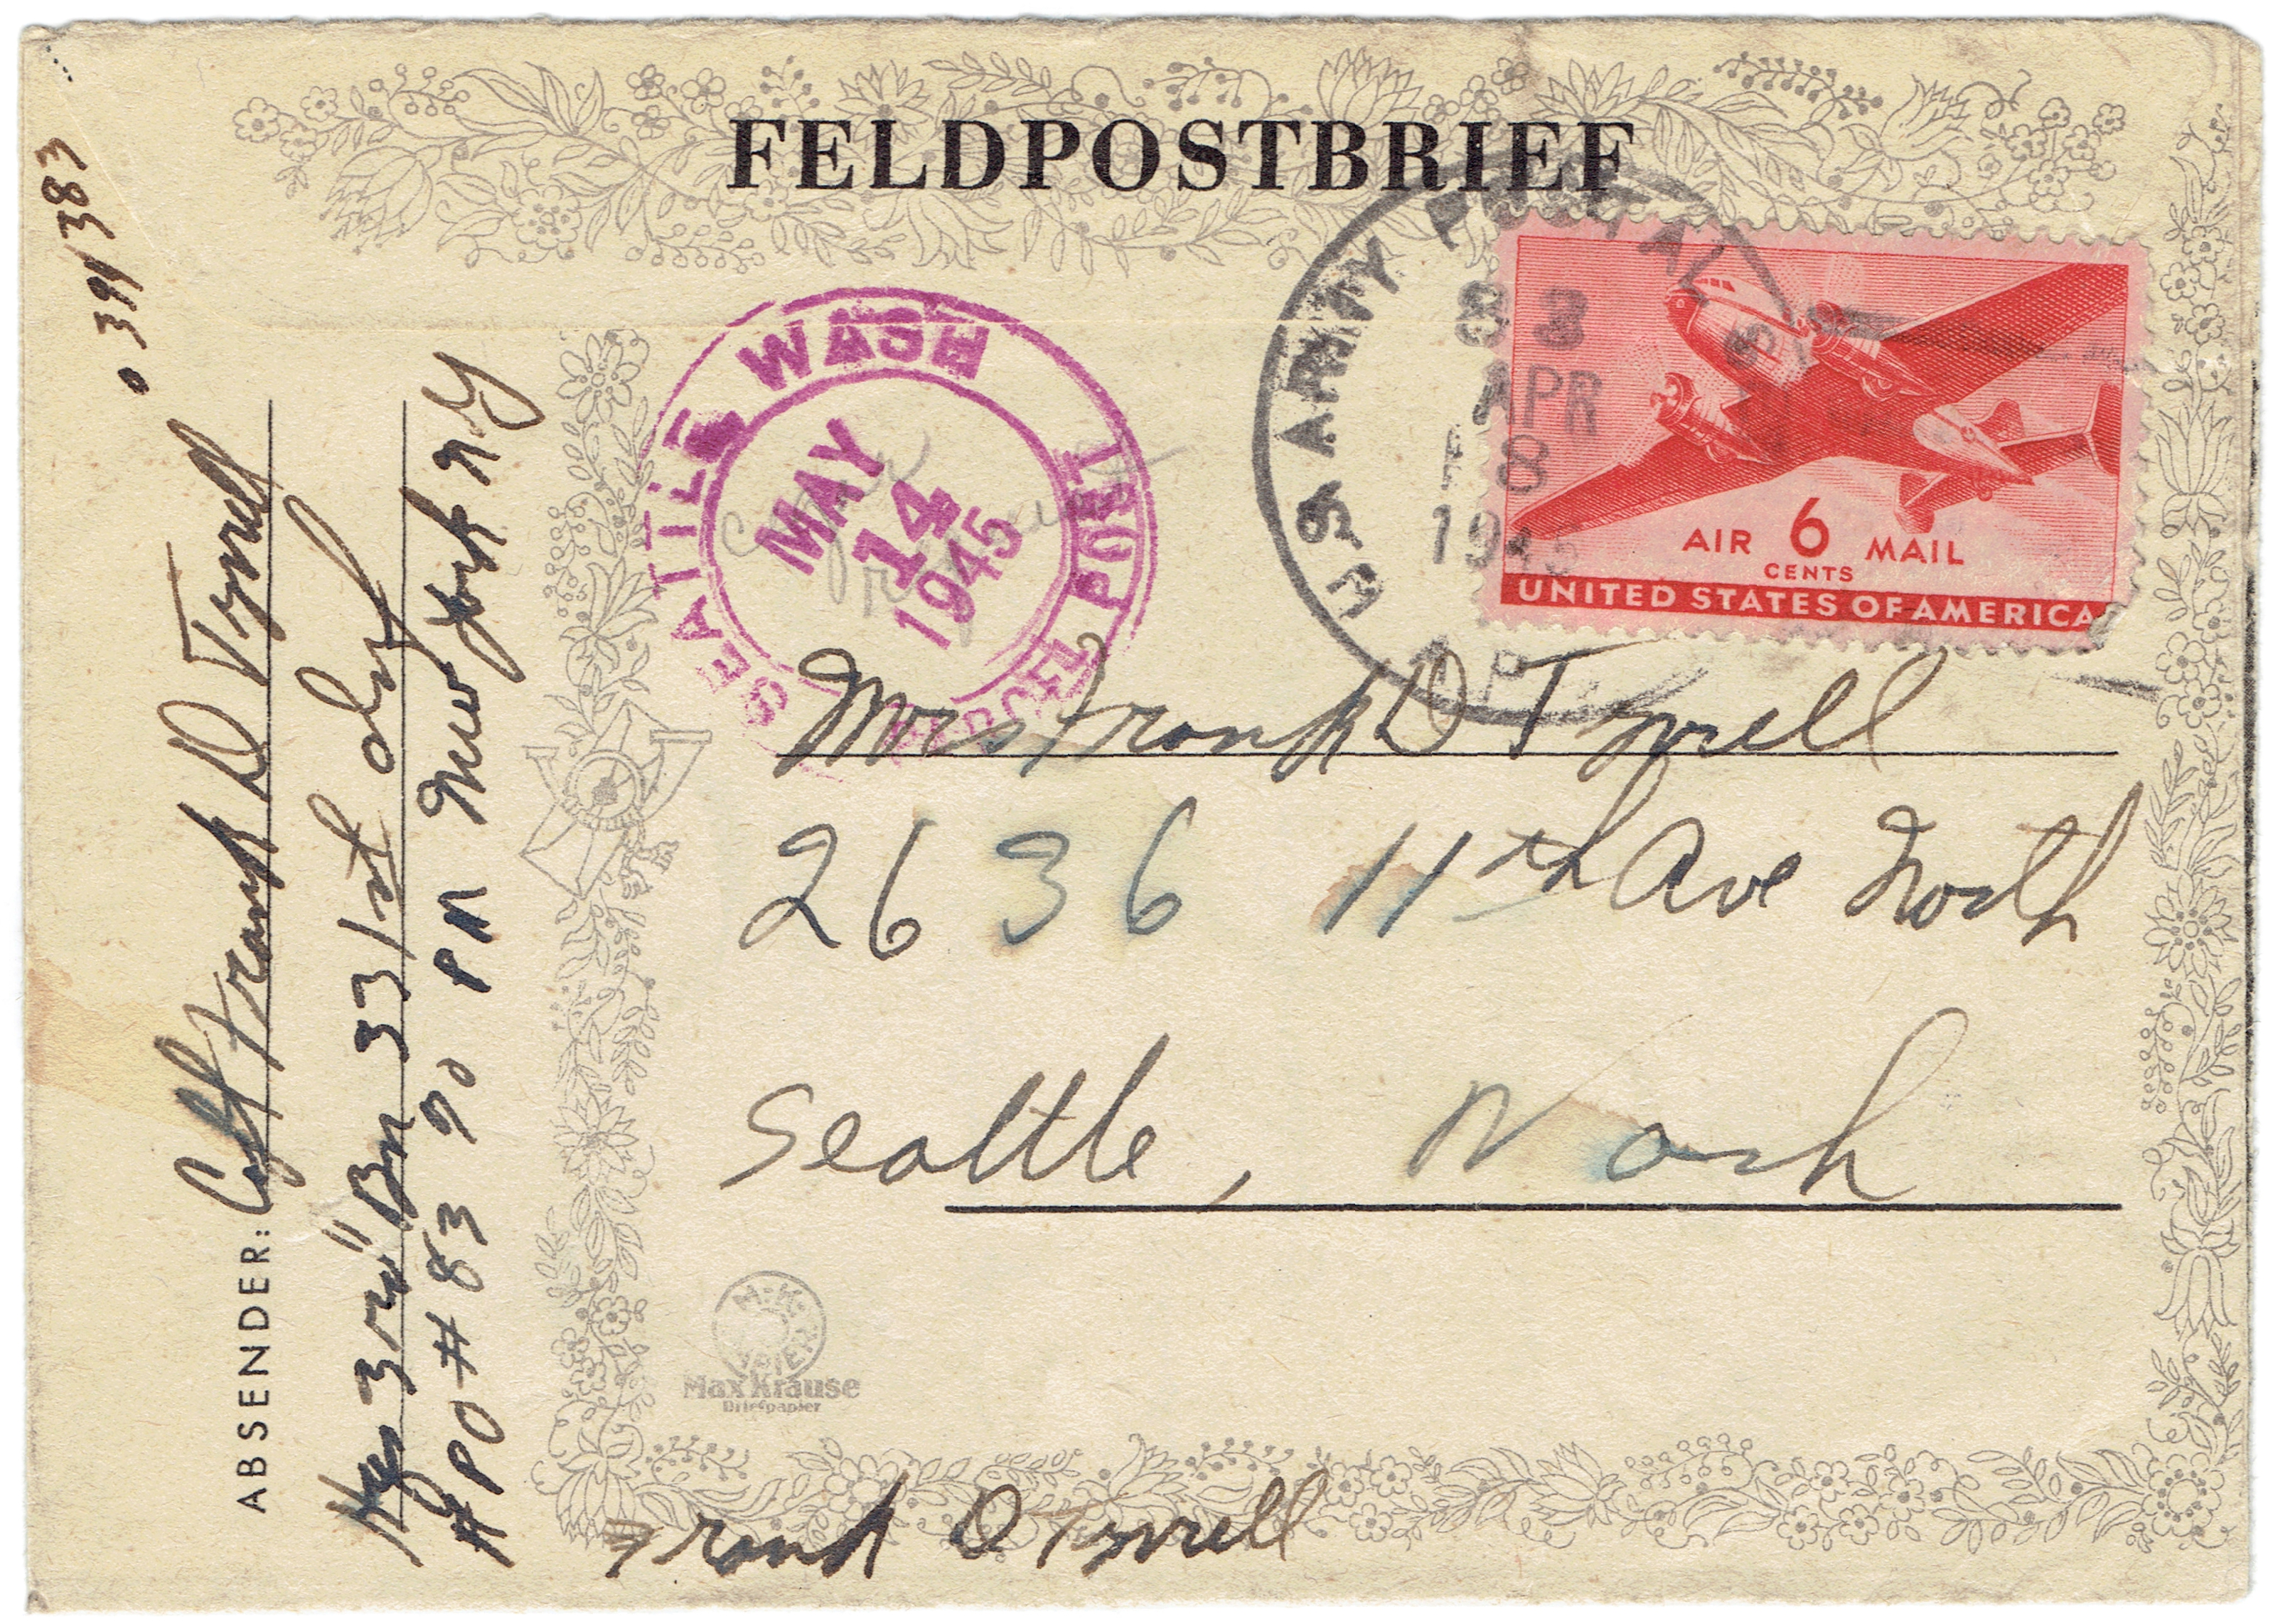 FELDPOSTBRIEF
U.S. ARMY POSTAL
APR
8
1945
AIR 6 MAIL
CENTS
UNITED STATES OF AMERICA
SEATTLE WASH
MAY
14
1945
PARCEL POST
Mrs Frank D Tyrrell
2636 11th Ave North
Seattle, Wash
M.K.
PAPIER
Max Krause
Briefpapier
Frank D Tyrrell
ABSENDER: Capt Frank D Tyrrell
0391383
Hqs 3rd Bn 331st
APO # 83 % PM New York NY